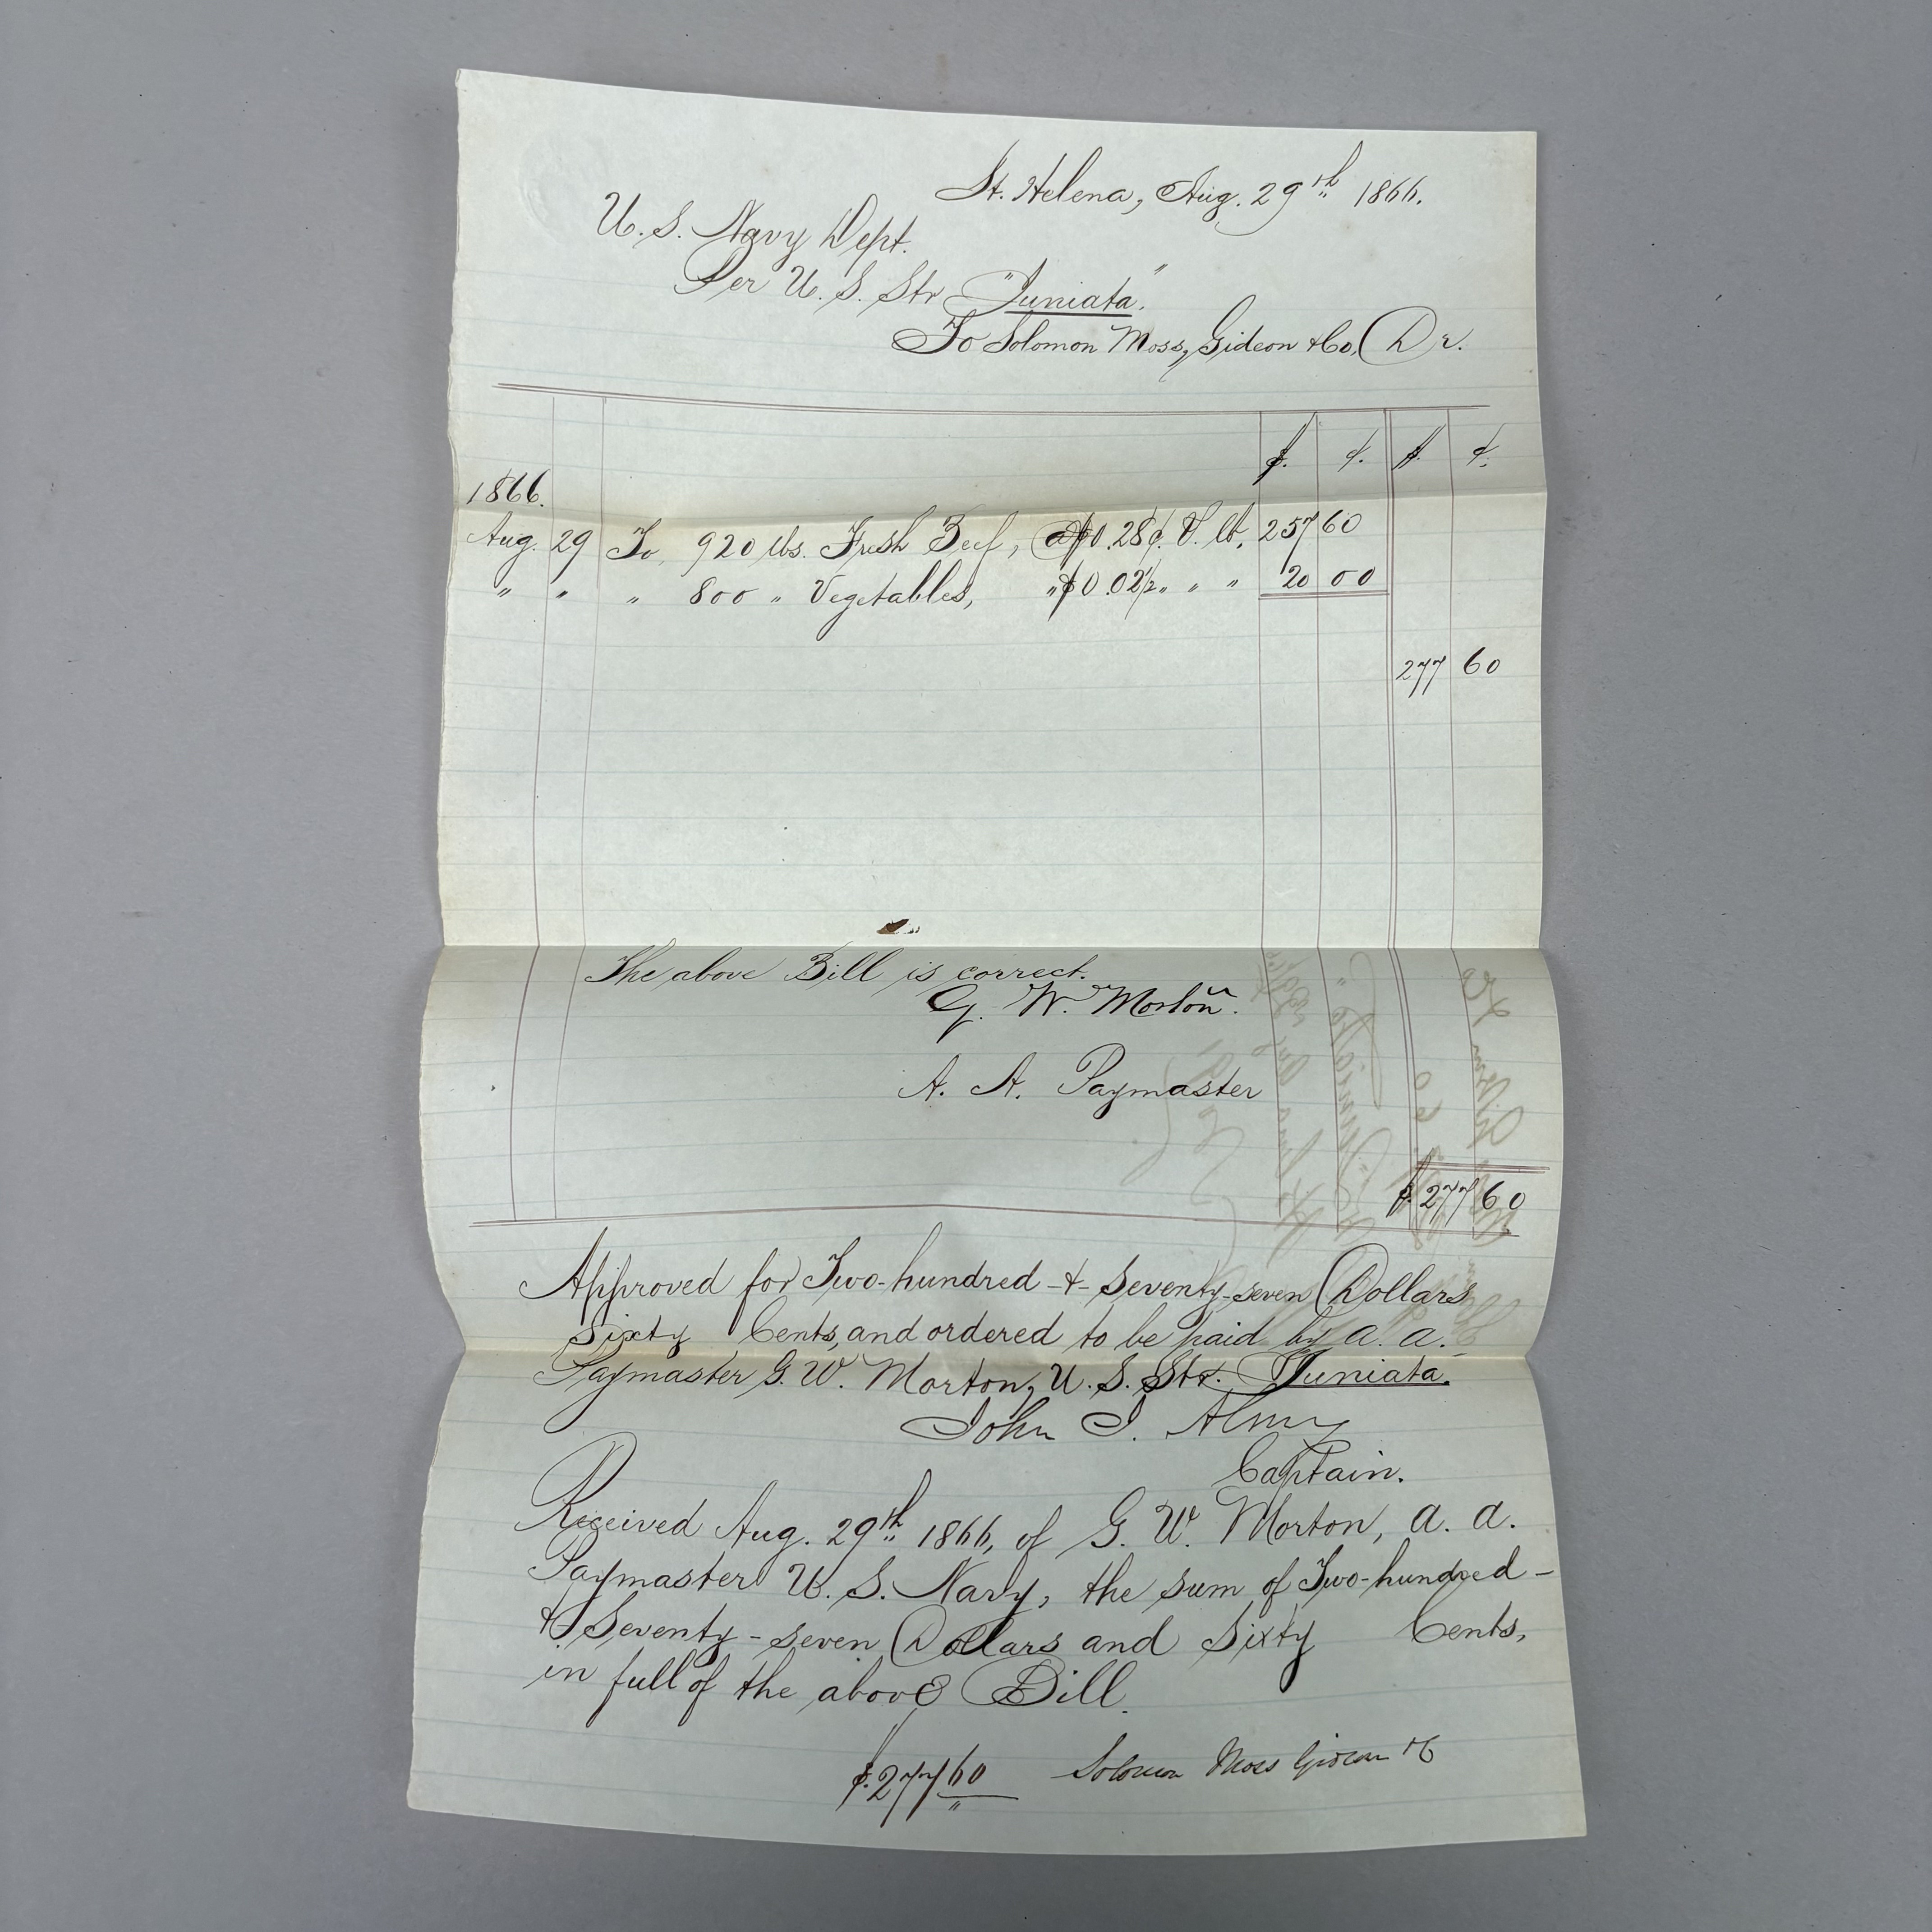 St. Helena, Aug. 29th 1866.
U. S. Navy Dept.
Per U. S. Str "Juniata".
To Solomon Moss, Gideon & Co, Dr.
$. ¢. $. ¢.
1866.
Aug. 29 To, 920 lbs. Fresh Beef, @ $0.28¢. P. lb, 257 60
" " " 800 " Vegetables, " $0.02½ " " " 20 00
277 60
The above Bill is correct.
G. W. Morton.
A. A. Paymaster
$. 277 60
Approved for Two-hundred -&- Seventy-seven Dollars
Sixty Cents, and ordered to be paid by A. A.
Paymaster G. W. Morton, U. S. Str. Juniata.
John J. Almy
Captain.
Received Aug. 29th 1866, of G. W. Morton, A. A.
Paymaster U. S. Navy, the sum of Two-hundred-
&. Seventy-seven Dollars and Sixty Cents,
in full of the above Bill.
$.277 60 Solomon Moss Gideon & Co